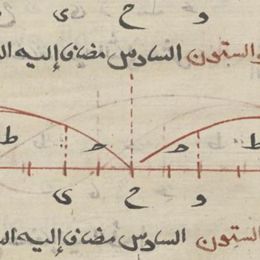 و ح ى
والستون السادس مضاف إليه
ط ح ح ط
و ح ى
الستون السادس مضاف إليه